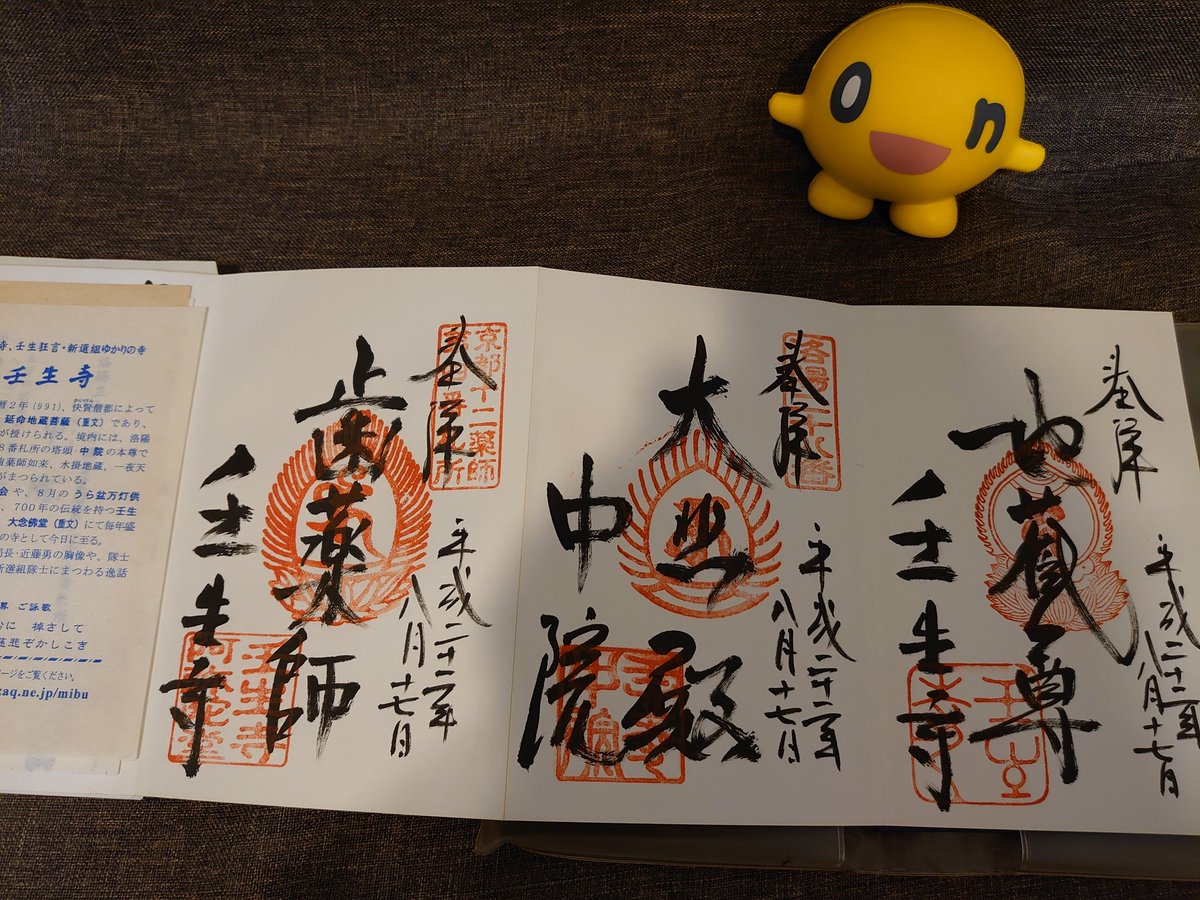 奉拝
平成二十二年
八月十七日
地蔵尊
壬生寺
奉拝
平成二十二年
八月十七日
大悲殿
中院
京都十二薬師
奉拝
平成二十二年
八月十七日
歯薬師
壬生寺
寺、壬生狂言・新選組ゆかりの寺
壬生寺
暦2年(991)、快賢僧都によって
延命地蔵菩薩(重文)であり、
が授けられる。境内には、洛陽
8番札所の塔頭・中院の本尊で
薬師如来、水掛地蔵、一夜天
がまつられている。
会や、8月のうら盆万灯供
、700年の伝統を持つ壬生
大念佛堂(重文)にて毎年盛
の寺として今日に至る。
局長・近藤勇の胸像や、隊士
新選組隊士にまつわる逸話
ご詠歌
棹さして
慈悲ぞかしこき
ページをご覧ください。
zaq.ne.jp/mibu